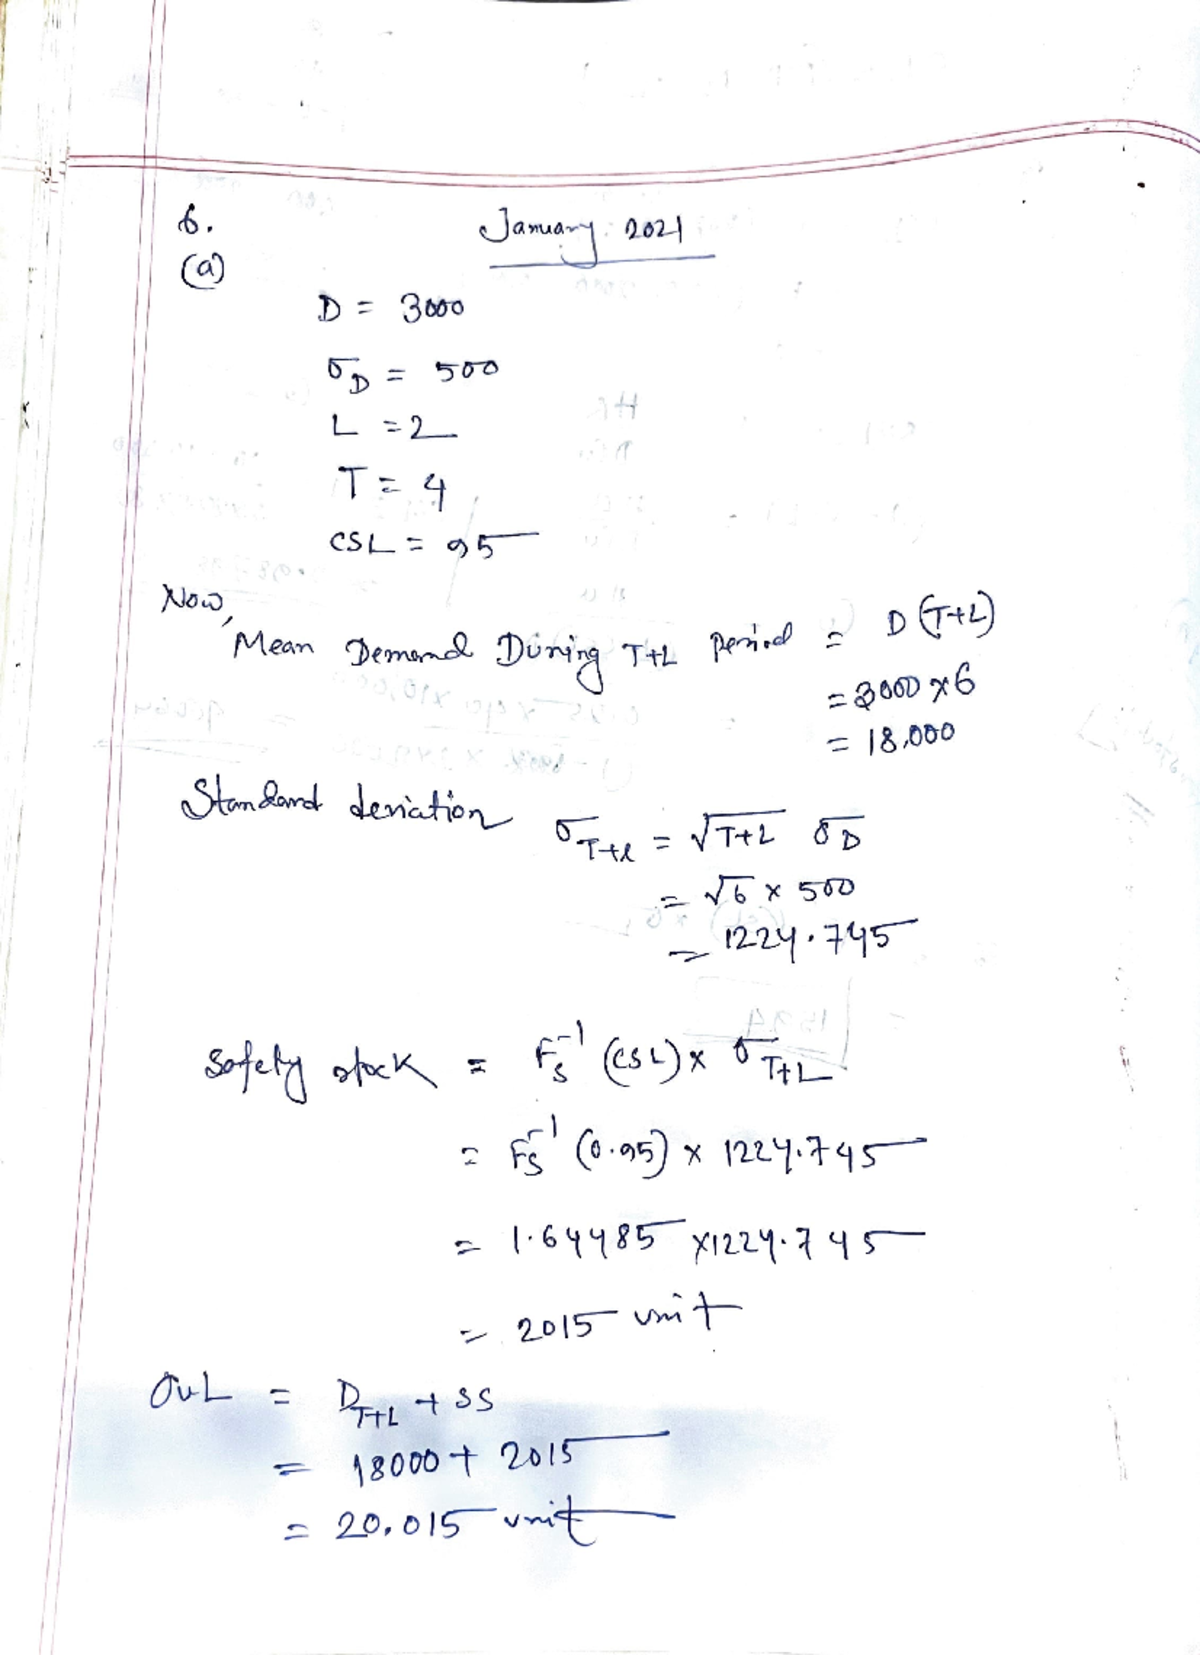 6.
January 2021
(a)
D = 3000
σD = 500
L = 2
T = 4
CSL = 95
Now,
Mean Demand During T+L Period = D (T+L)
= 3000 × 6
= 18,000
Standard deviation σT+L = √T+L σD
= √6 × 500
= 1224.745
Safety stock = Fs⁻¹ (CSL) × σT+L
= Fs⁻¹ (0.95) × 1224.745
= 1.64485 × 1224.745
= 2015 unit
OUL = DT+L + SS
= 18000 + 2015
= 20,015 unit